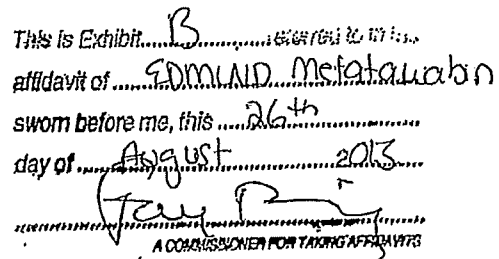 This is Exhibit B referred to in the
affidavit of EDMUND Metatawabin
sworn before me, this 26th
day of August 2013
A COMMISSIONER FOR TAKING AFFIDAVITS